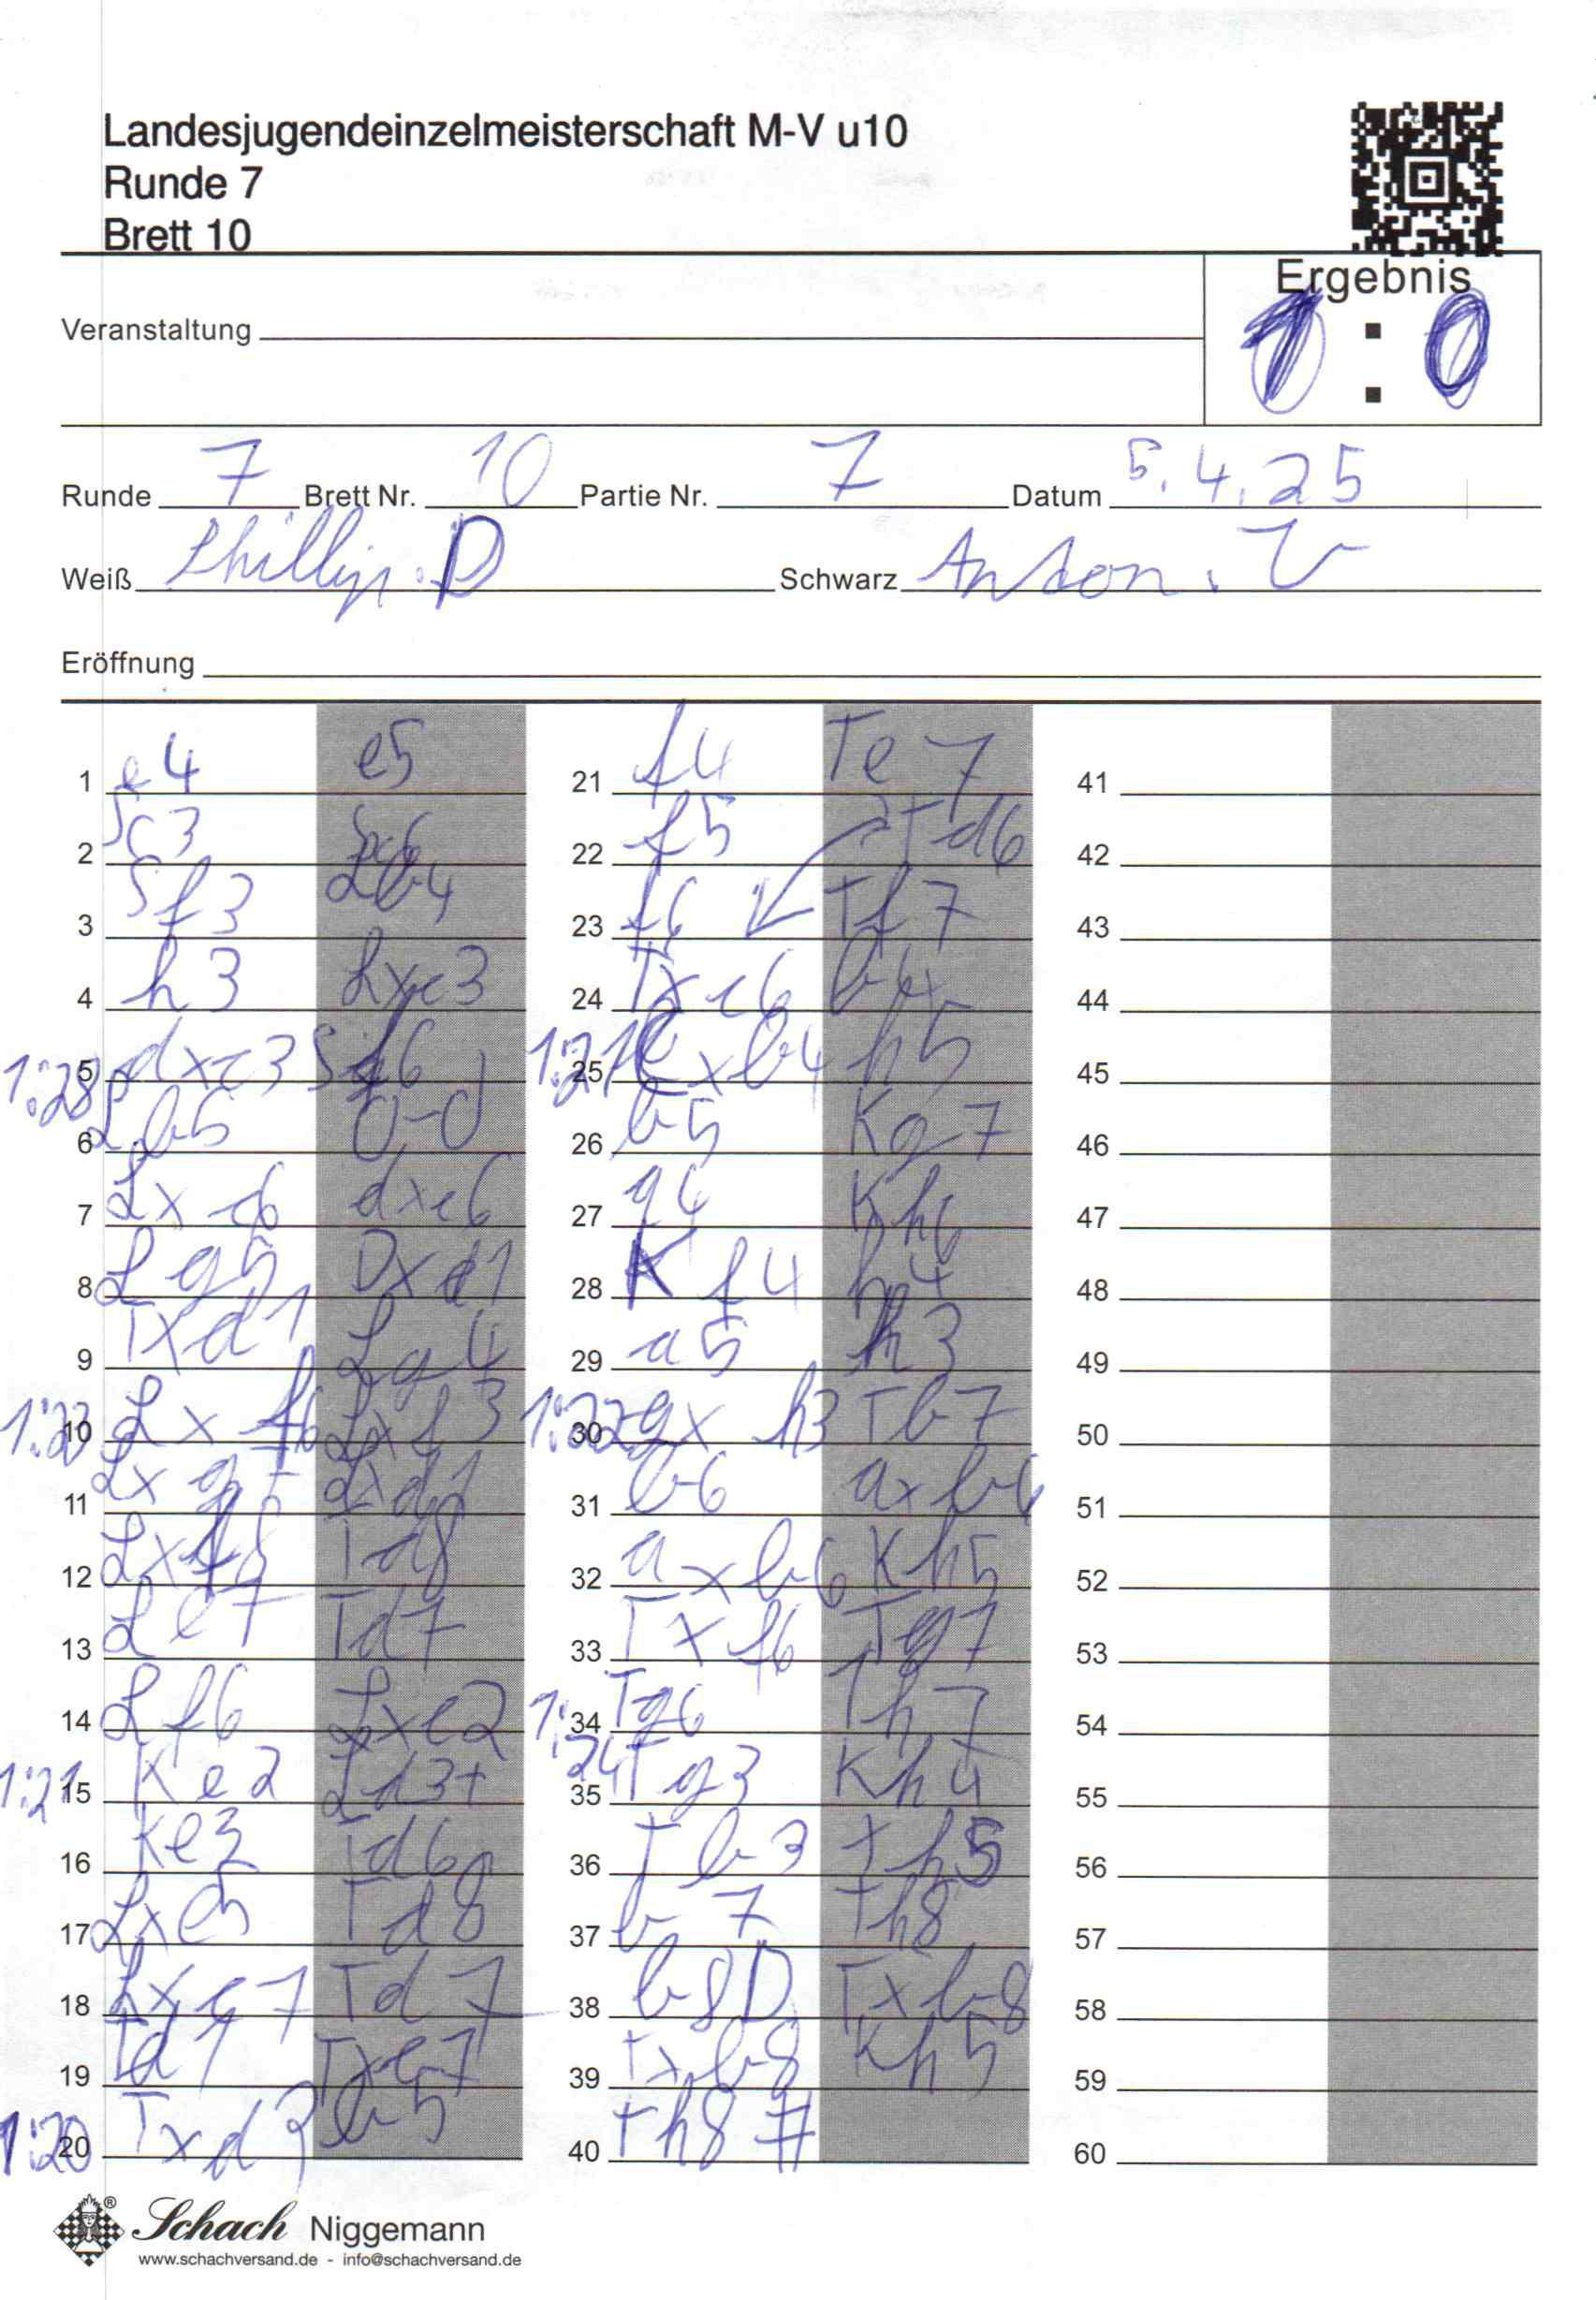 Landesjugendeinzelmeisterschaft M-V u10
Runde 7
Brett 10
Ergebnis
Veranstaltung
1 : 0
Runde 7 Brett Nr. 10 Partie Nr. 7 Datum 5.4.25
Weiß Phillip. D Schwarz Anton. V
Eröffnung
1 e4 e5
2 Sc3 Sc6
3 Sf3 Lb4
4 h3 Lxc3
1:28 5 dxc3 Sf6
6 Lb5 0-0
7 Lxc6 dxc6
8 Lg5 Dxd1
9 Txd1 Lg4
1:23 10 Lxf6 Lxf3
11 Lxg7 Lxd1
12 Lxf8 Td8
13 Le7 Td7
14 Lf6 Lxc2
1:21 15 Ke2 Ld3+
16 Ke3 Td6
17 Lxe5 Td8
18 Lxc7 Td7
19 Td1 Txc7
1:20 20 Txd3 b5
21 f4 Te7
22 f5 Td6
23 f6 Tf7
24 Txc6 b4
1:21 25 cxb4 h5
26 b5 Kg7
27 g4 Kh6
28 Kf4 h4
29 a5 h3
1:22 30 gxh3 Tb7
31 b6 axb6
32 axb6 Kh5
33 Txf6 Tg7
1:24 34 Tg6 Th7
35 Tg3 Kh4
36 Tb3 Th5
37 b7 Th8
38 b8D Txb8
39 Txb8 Kh5
40 Th8#
41
42
43
44
45
46
47
48
49
50
51
52
53
54
55
56
57
58
59
60
Schach Niggemann
www.schachversand.de - info@schachversand.de